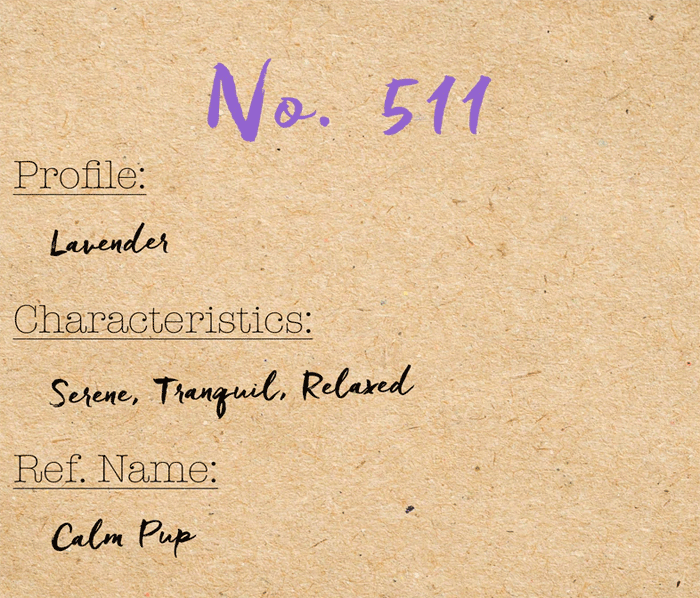 No. 511
Profile:
Lavender
Characteristics:
Serene, Tranquil, Relaxed
Ref. Name:
Calm Pup